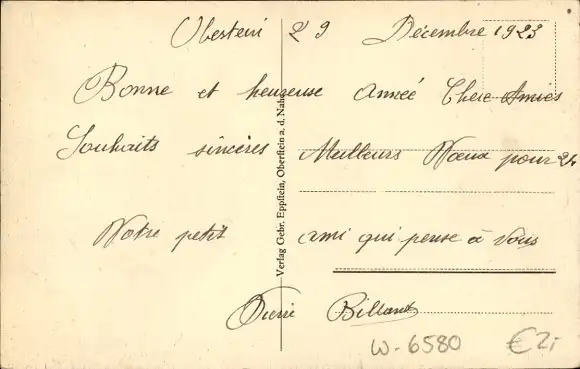 Oberstein 29 Décembre 1923
Bonne et heureuse Année Chere Amies
Souhaits sincères Meilleurs Voeux pour 24
Votre petit ami qui pense à Vous
Pierre Billand
Verlag Gebr. Eppstein, Oberstein a. d. Nahe
W-6580 €2,-